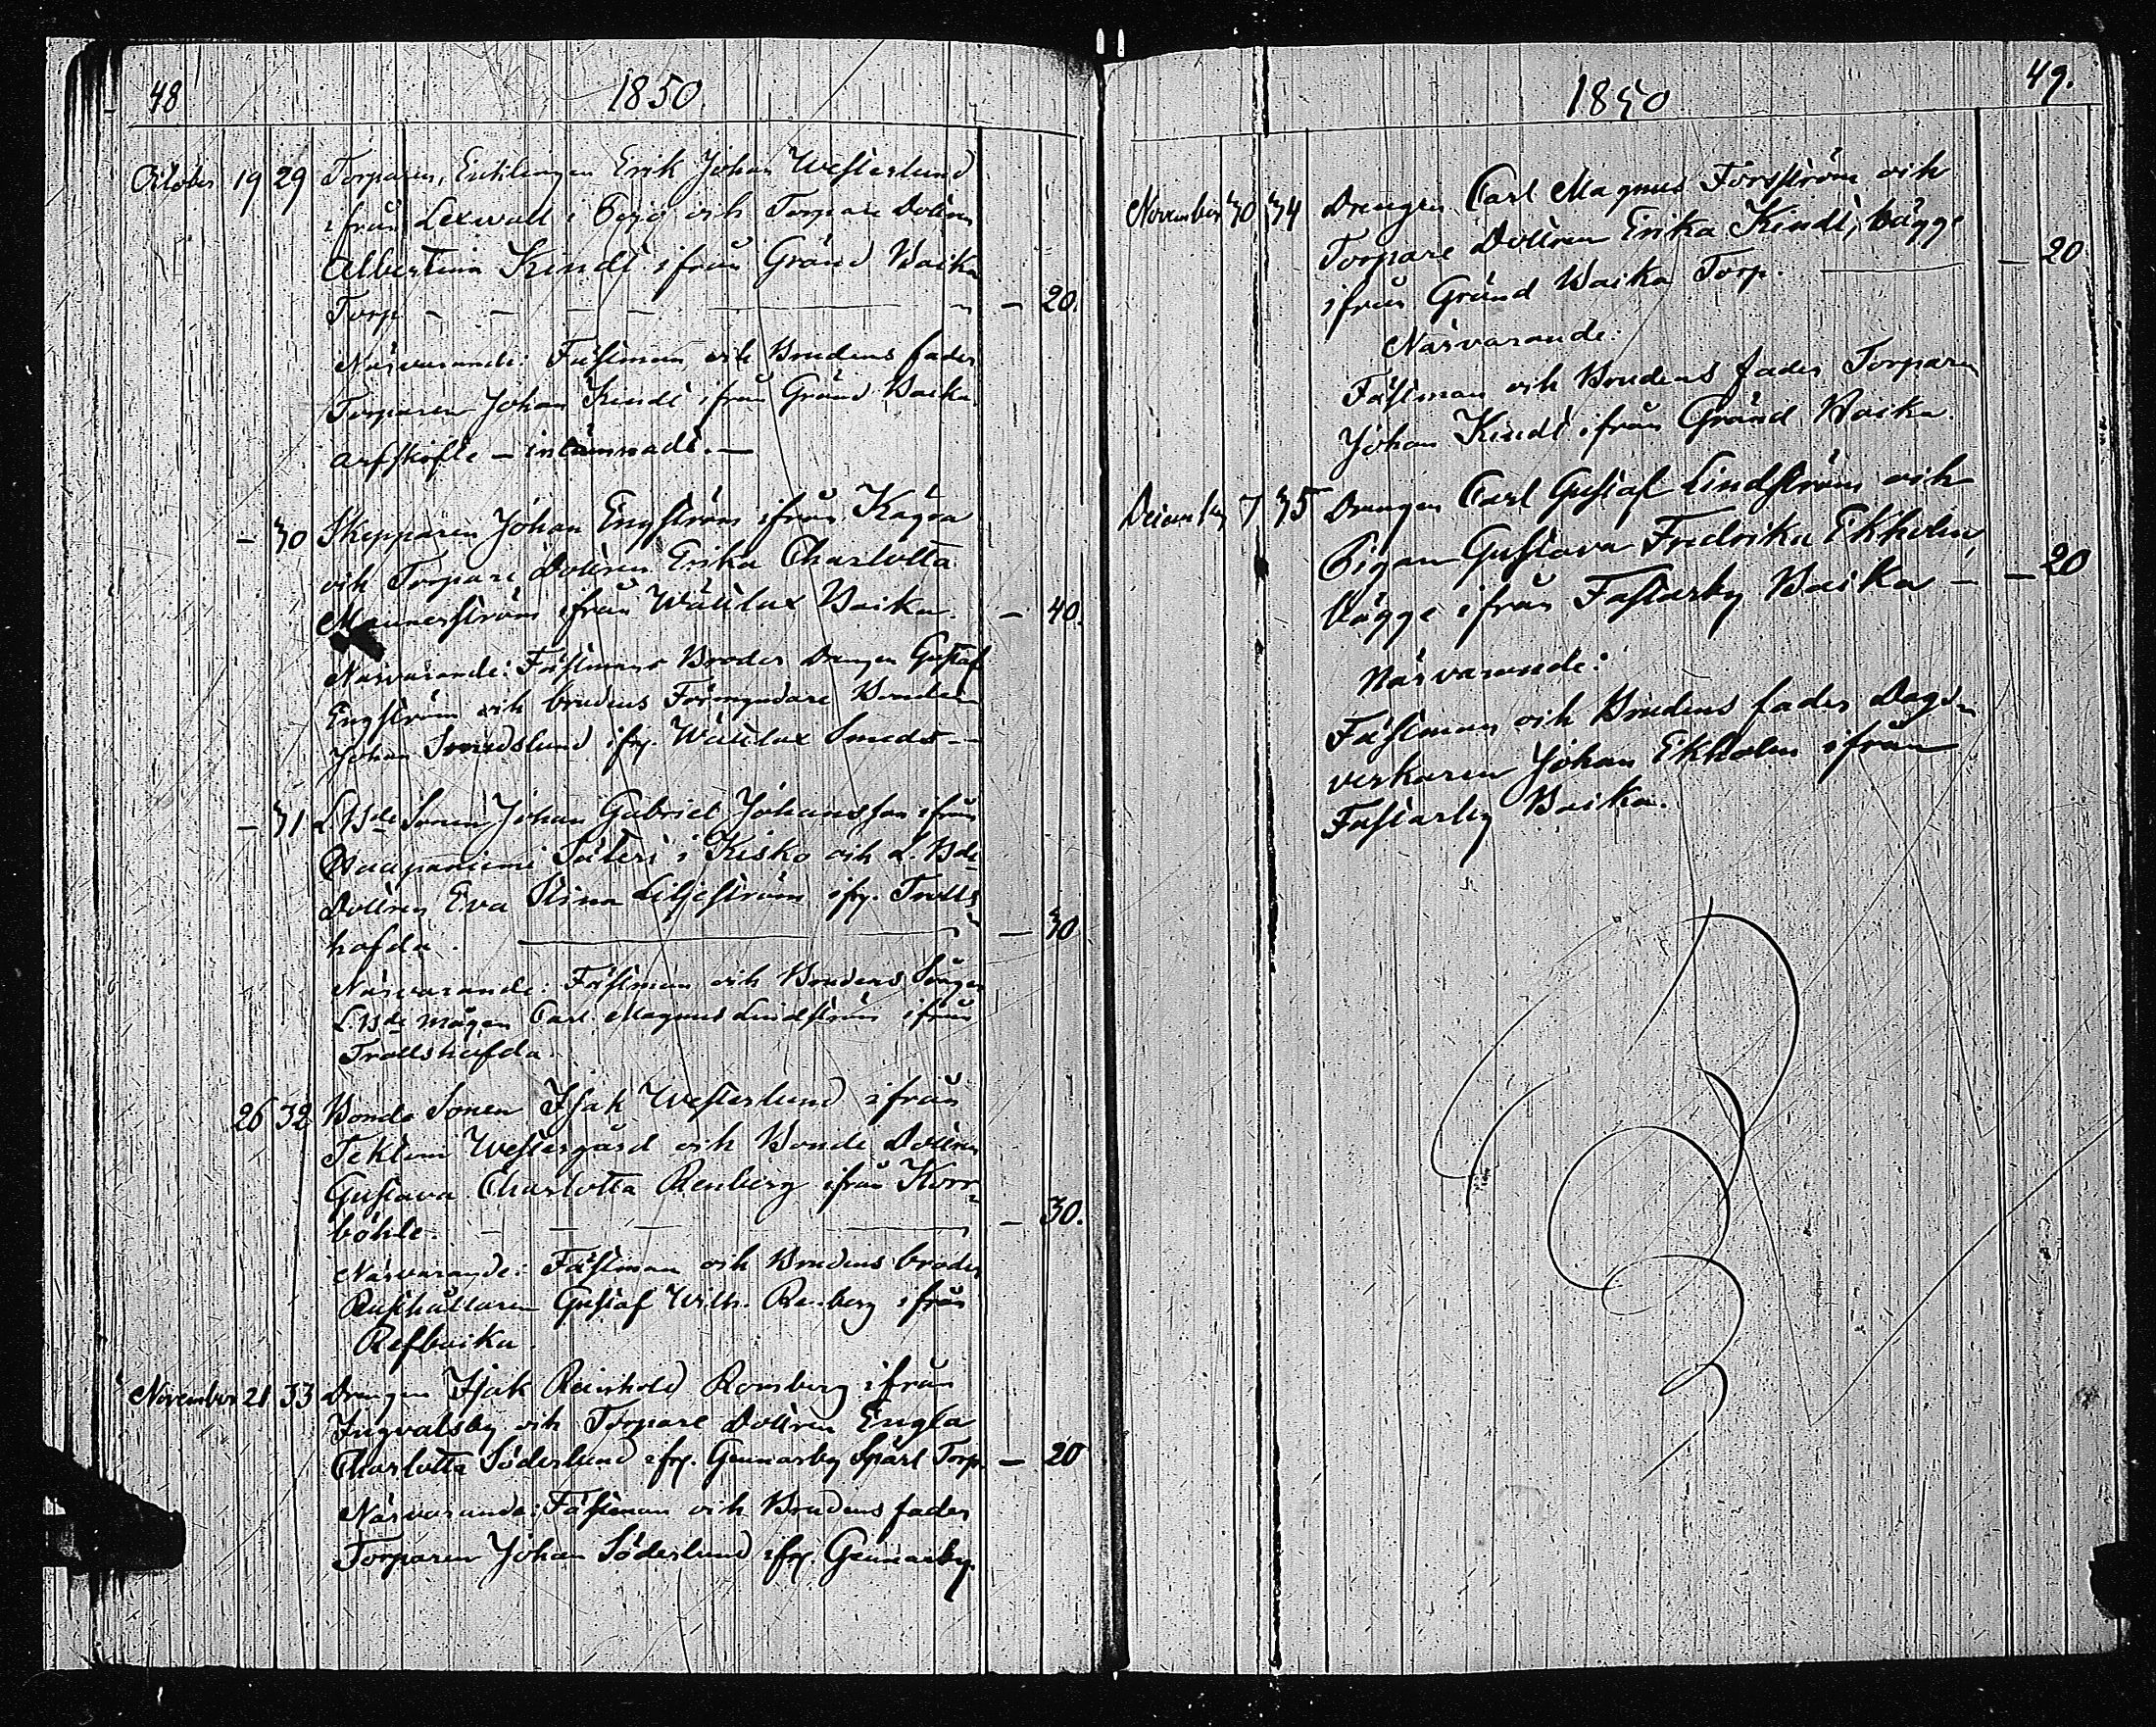 48 1850
October 19 29 Torparen, Enklingen Erik Johan Westerlund
ifrån Lexwall i Pojo och Torpare Dottren
Albertina Kindt ifrån Gränd Backa
Torp - - - - - 20.
Närvarande: Fästman och Brudens fader
Torparen Johan Kindt ifrån Gränd Backa.
arfskifte - inlämnadt. -
- 30 Skepparen Johan Engström ifrån Kägra
och Torpare Dottren Erika Charlotta
Mannerström ifrån Wättlax Backa. - 40.
Närvarande: Fästmans Broder Drengen Gustaf
Engström och brudens Förmyndare Bonden
Johan Smedslund ifr. Wättlax Smeds -
- 31 L. Bde Sonen Johan Gabriel Johansson ifrån
Haapaniemi Säteri i Kisko och L. Bde
Dottren Eva Stina Liljeström ifr. Trolls
hofda. - 30
Närvarande: Fästman och Brudens Svåger
L. Bde mågen Carl Magnus Lindström ifrån
Trollshofda.
26 32 Bonde Sonen Isak Westerlund ifrån
Tektom Westergård och Bonde Dottren
Gustava Charlotta Renberg ifrån Korr-
böhle. - - - - 30.
Närvarande: Fästman och Brudens broder
Rusthållaren Gustaf Wilh. Renberg ifrån
Refbacka.
November 21 33 Drengen Isak Reinhold Romberg ifrån
Ingvalsby och Torpare Dottren Engla
Charlotta Söderlund ifr. Gennarby Spårt Torp. - 20
Närvarande: Fästman och Brudens fader
Torparen Johan Söderlund ifr. Gennarby.
1850 49.
November 30 34 Drengen Carl Magnus Forsström och
Torpare Dottren Erika Kindt, bägge
ifrån Gränd Backa Torp. - 20
Närvarande:
Fästman och Brudens fader Torparen
Johan Kindt ifrån Gränd Backa.
December 7 35 Drengen Carl Gustaf Lindström och
Pigan Gustava Fredrika Ekholm,
bägge ifrån Fastarby Backa - - 20
Närvarande:
Fästman och Brudens fader Dags-
verkaren Johan Ekholm ifrån
Fastarby Backa.